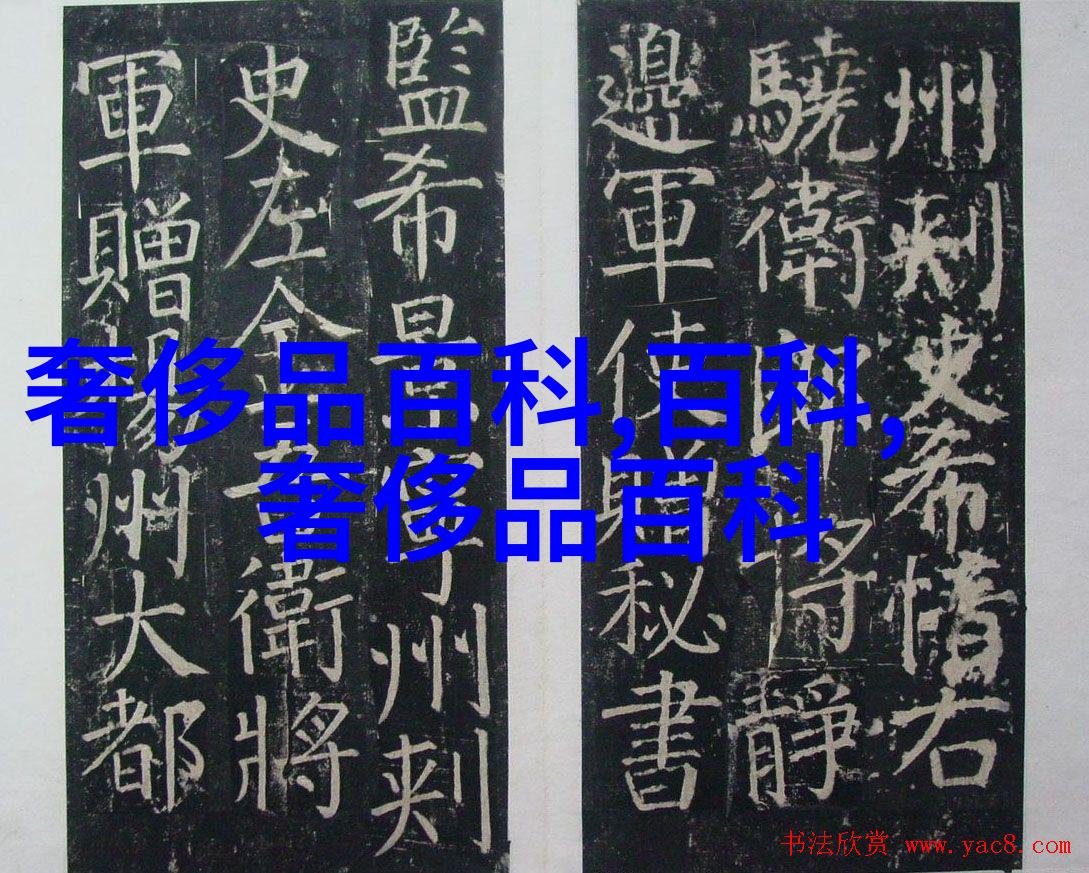 州刺史希惜右
驍衛郎將靜
邊軍使贈秘書
監希景寧州刺
史左金吾衛將
軍贈揚州大都
奢侈品百科,百科,
奢侈品百科
书法欣赏 www.yac8.com